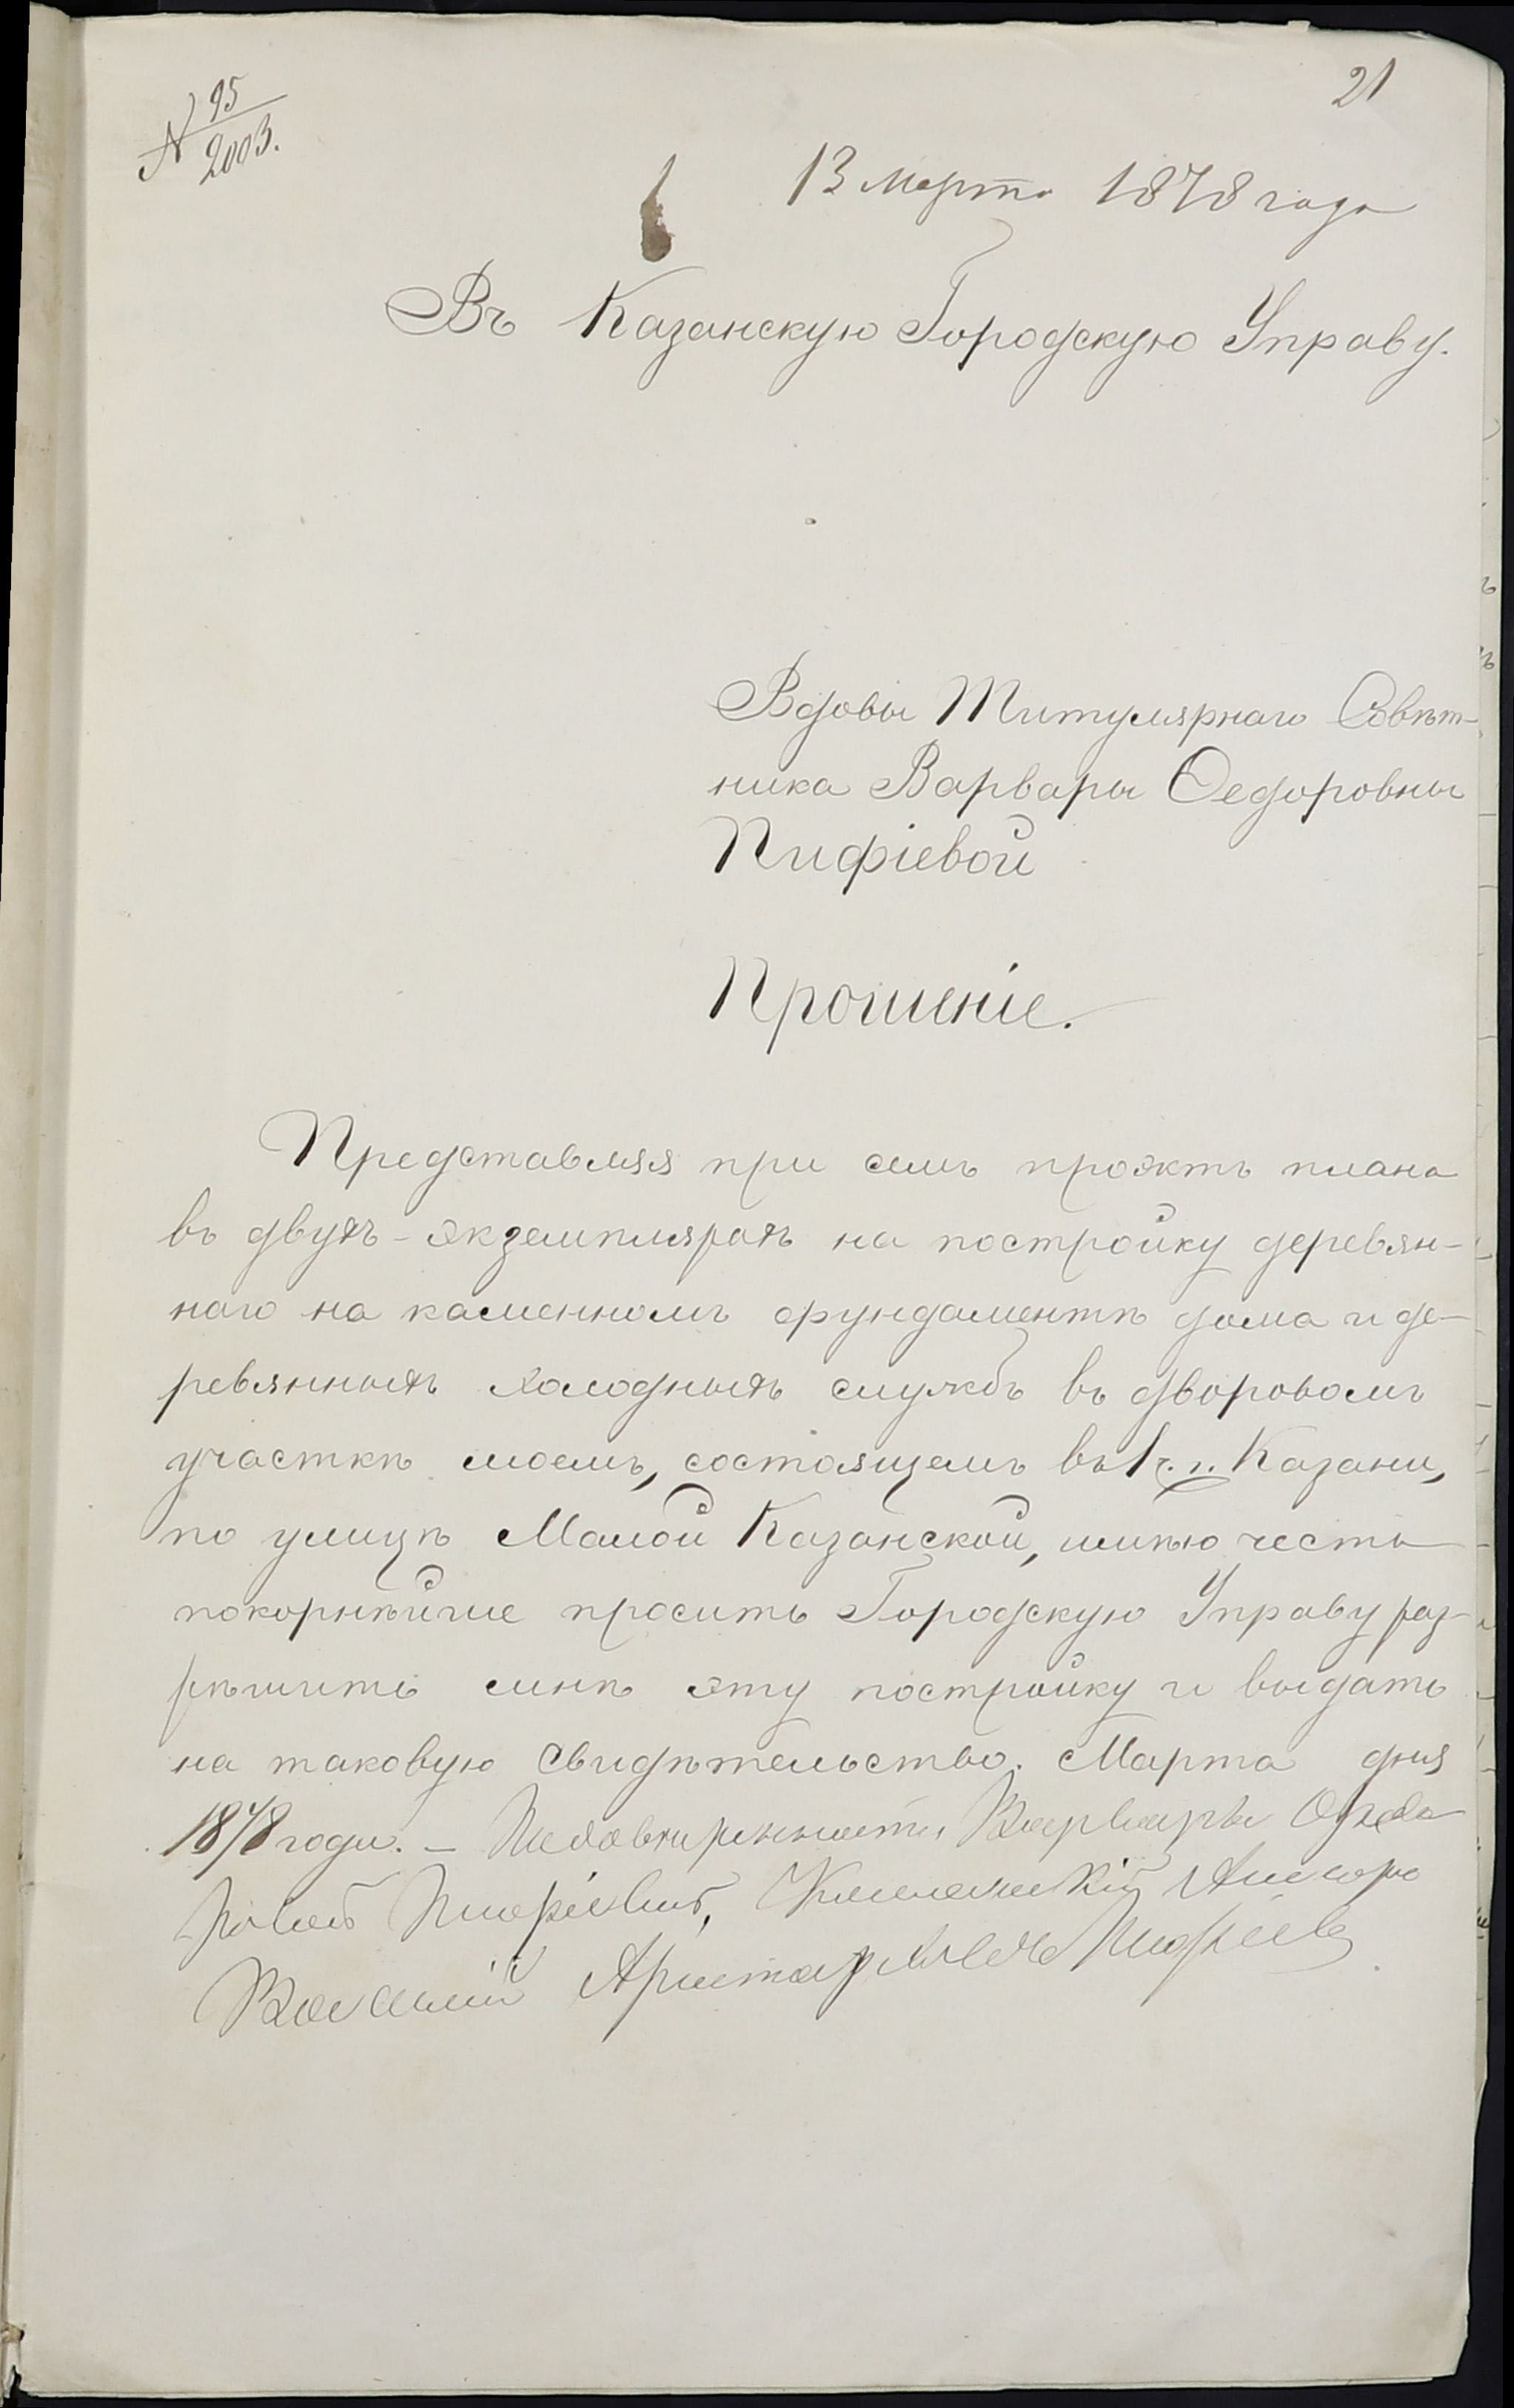 21
N 95
2003.
13 марта 1878 года
Въ Казанскую Городскую Управу.
Вдовы Титулярнаго Совѣт-
ника Варвары Ѳедоровны
Пифіевой
Прошеніе.
Представляя при семъ проэктъ плана
въ двухъ-экземплярахъ на постройку деревян-
наго на каменномъ фундаментѣ дома и де-
ревянныхъ холодныхъ службъ въ дворовомъ
участкѣ моемъ, состоящемъ въ 1 ч. г. Казани,
по улицѣ Малой Казанской, имѣю честь
покорнѣйше просить Городскую Управу раз-
рѣшить мнѣ эту постройку и выдать
на таковую свидѣтельство. Марта дня
1878 года. - По довѣренности Варвары Ѳедо-
ровой Пифіевой, Коллежскій Ассесоръ
Василій Аристарховъ Пифіевъ